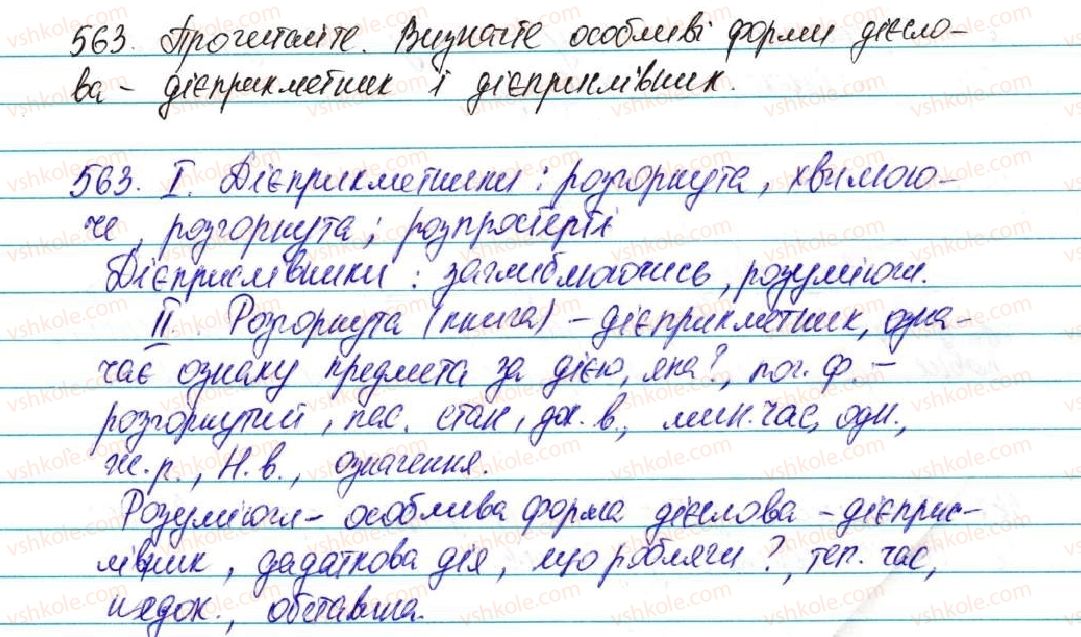 563. Прочитайте. Визначте особливі форми дієсло-
ва - дієприкметник і дієприслівник.
563. I. Дієприкметники: розгорнута, хвилюю-
че, розгорнута; розпростерті
Дієприслівники: заглиблюючись, розуміючи.
II. Розгорнута (книга) - дієприкметник, озна-
чає ознаку предмета за дією, яка?, поч. ф. -
розгорнутий, пас. стан, док. в., мин. час, одн.,
ж. р., Н. в., означення.
Розуміючи - особлива форма дієслова - дієприс-
лівник, додаткова дія, що роблячи?, теп. час,
недок., обставина.